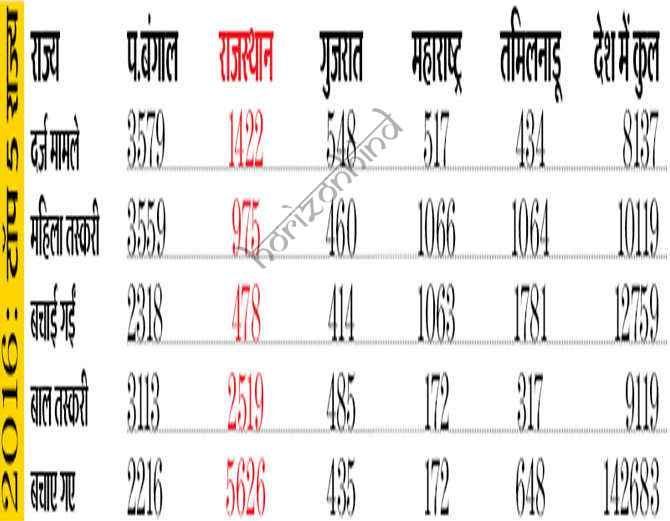 2016: टॉप 5 राज्य
राज्य प.बंगाल राजस्थान गुजरात महाराष्ट्र तमिलनाडू देश में कुल
दर्ज मामले 3579 1422 548 517 434 8137
महिला तस्करी 3559 975 460 1066 1064 10119
बचाई गईं 2318 478 414 1063 1781 12759
बाल तस्करी 3113 2519 485 172 317 9119
बचाए गए 2216 5626 435 172 648 142683
horizonhind